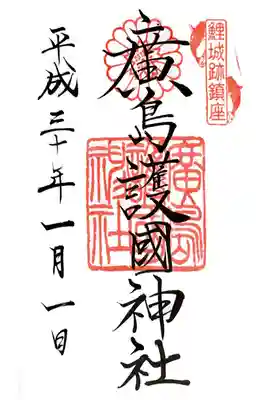 鯉城跡鎮座
廣島護國神社
廣島護國神社
平成三十年一月一日